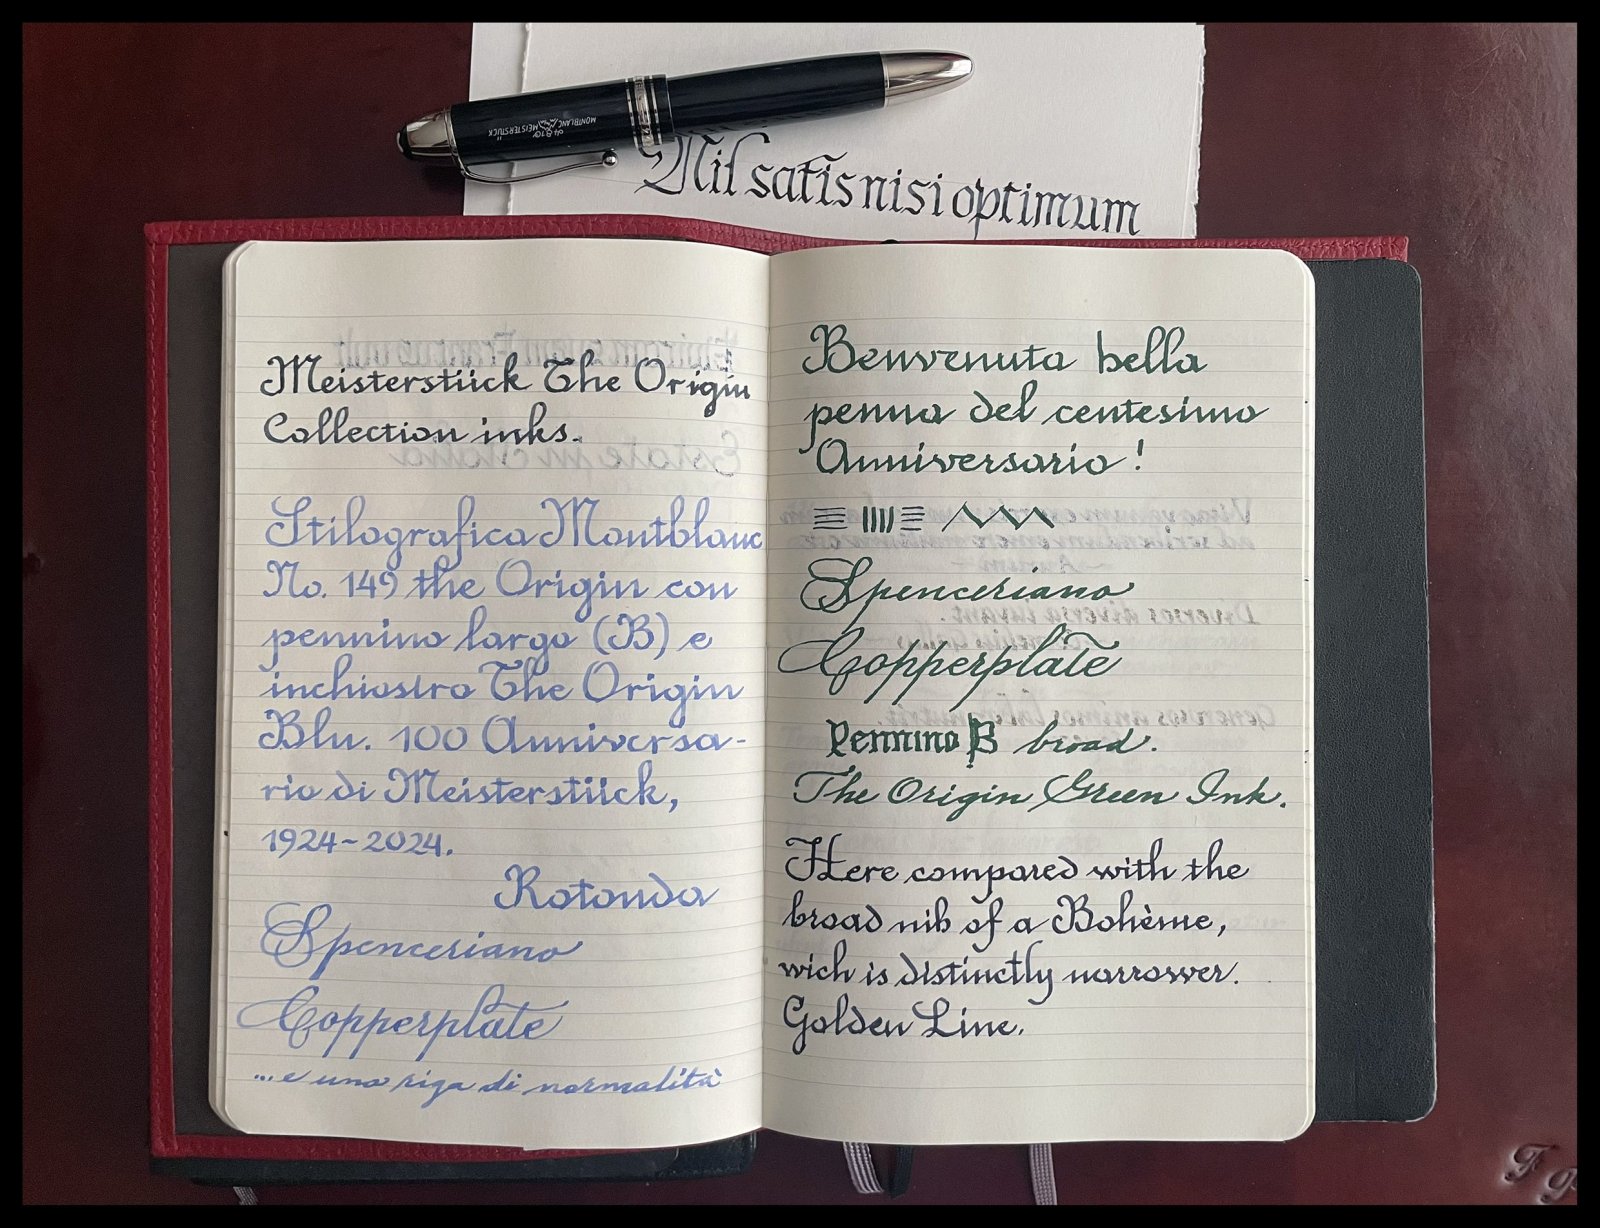 MONTBLANC
4810
MEISTERSTÜCK
Nil satis nisi optimum
Meisterstück The Origin
Collection inks.
Stilografica Montblanc
No. 149 the Origin con
pennino largo (B) e
inchiostro The Origin
Blu. 100 Anniversa-
rio di Meisterstück,
1924-2024.
Rotonda
Spenceriano
Copperplate
...e una riga di normalità
Benvenuta bella
penna del centesimo
Anniversario!
Spenceriano
Copperplate
Pennino B broad.
The Origin Green Ink.
Here compared with the
broad nib of a Bohème,
wich is distinctly narrower.
Golden Line.